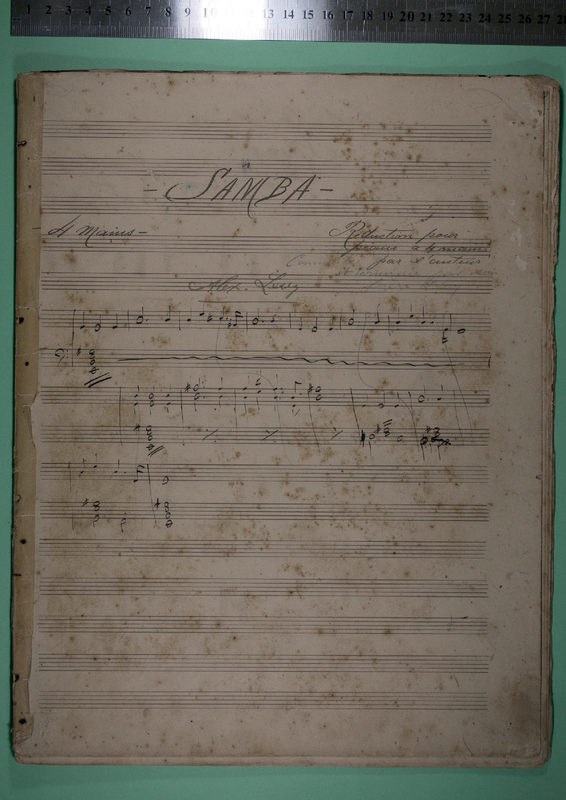 1 2 3 4 5 6 7 8 9 10 11 12 13 14 15 16 17 18 19 20 21 22 23 24 25 26 27 28
- SAMBA -
4 Mains -
Réduction pour
piano à 4 mains
par l'auteur
Alex. Levy